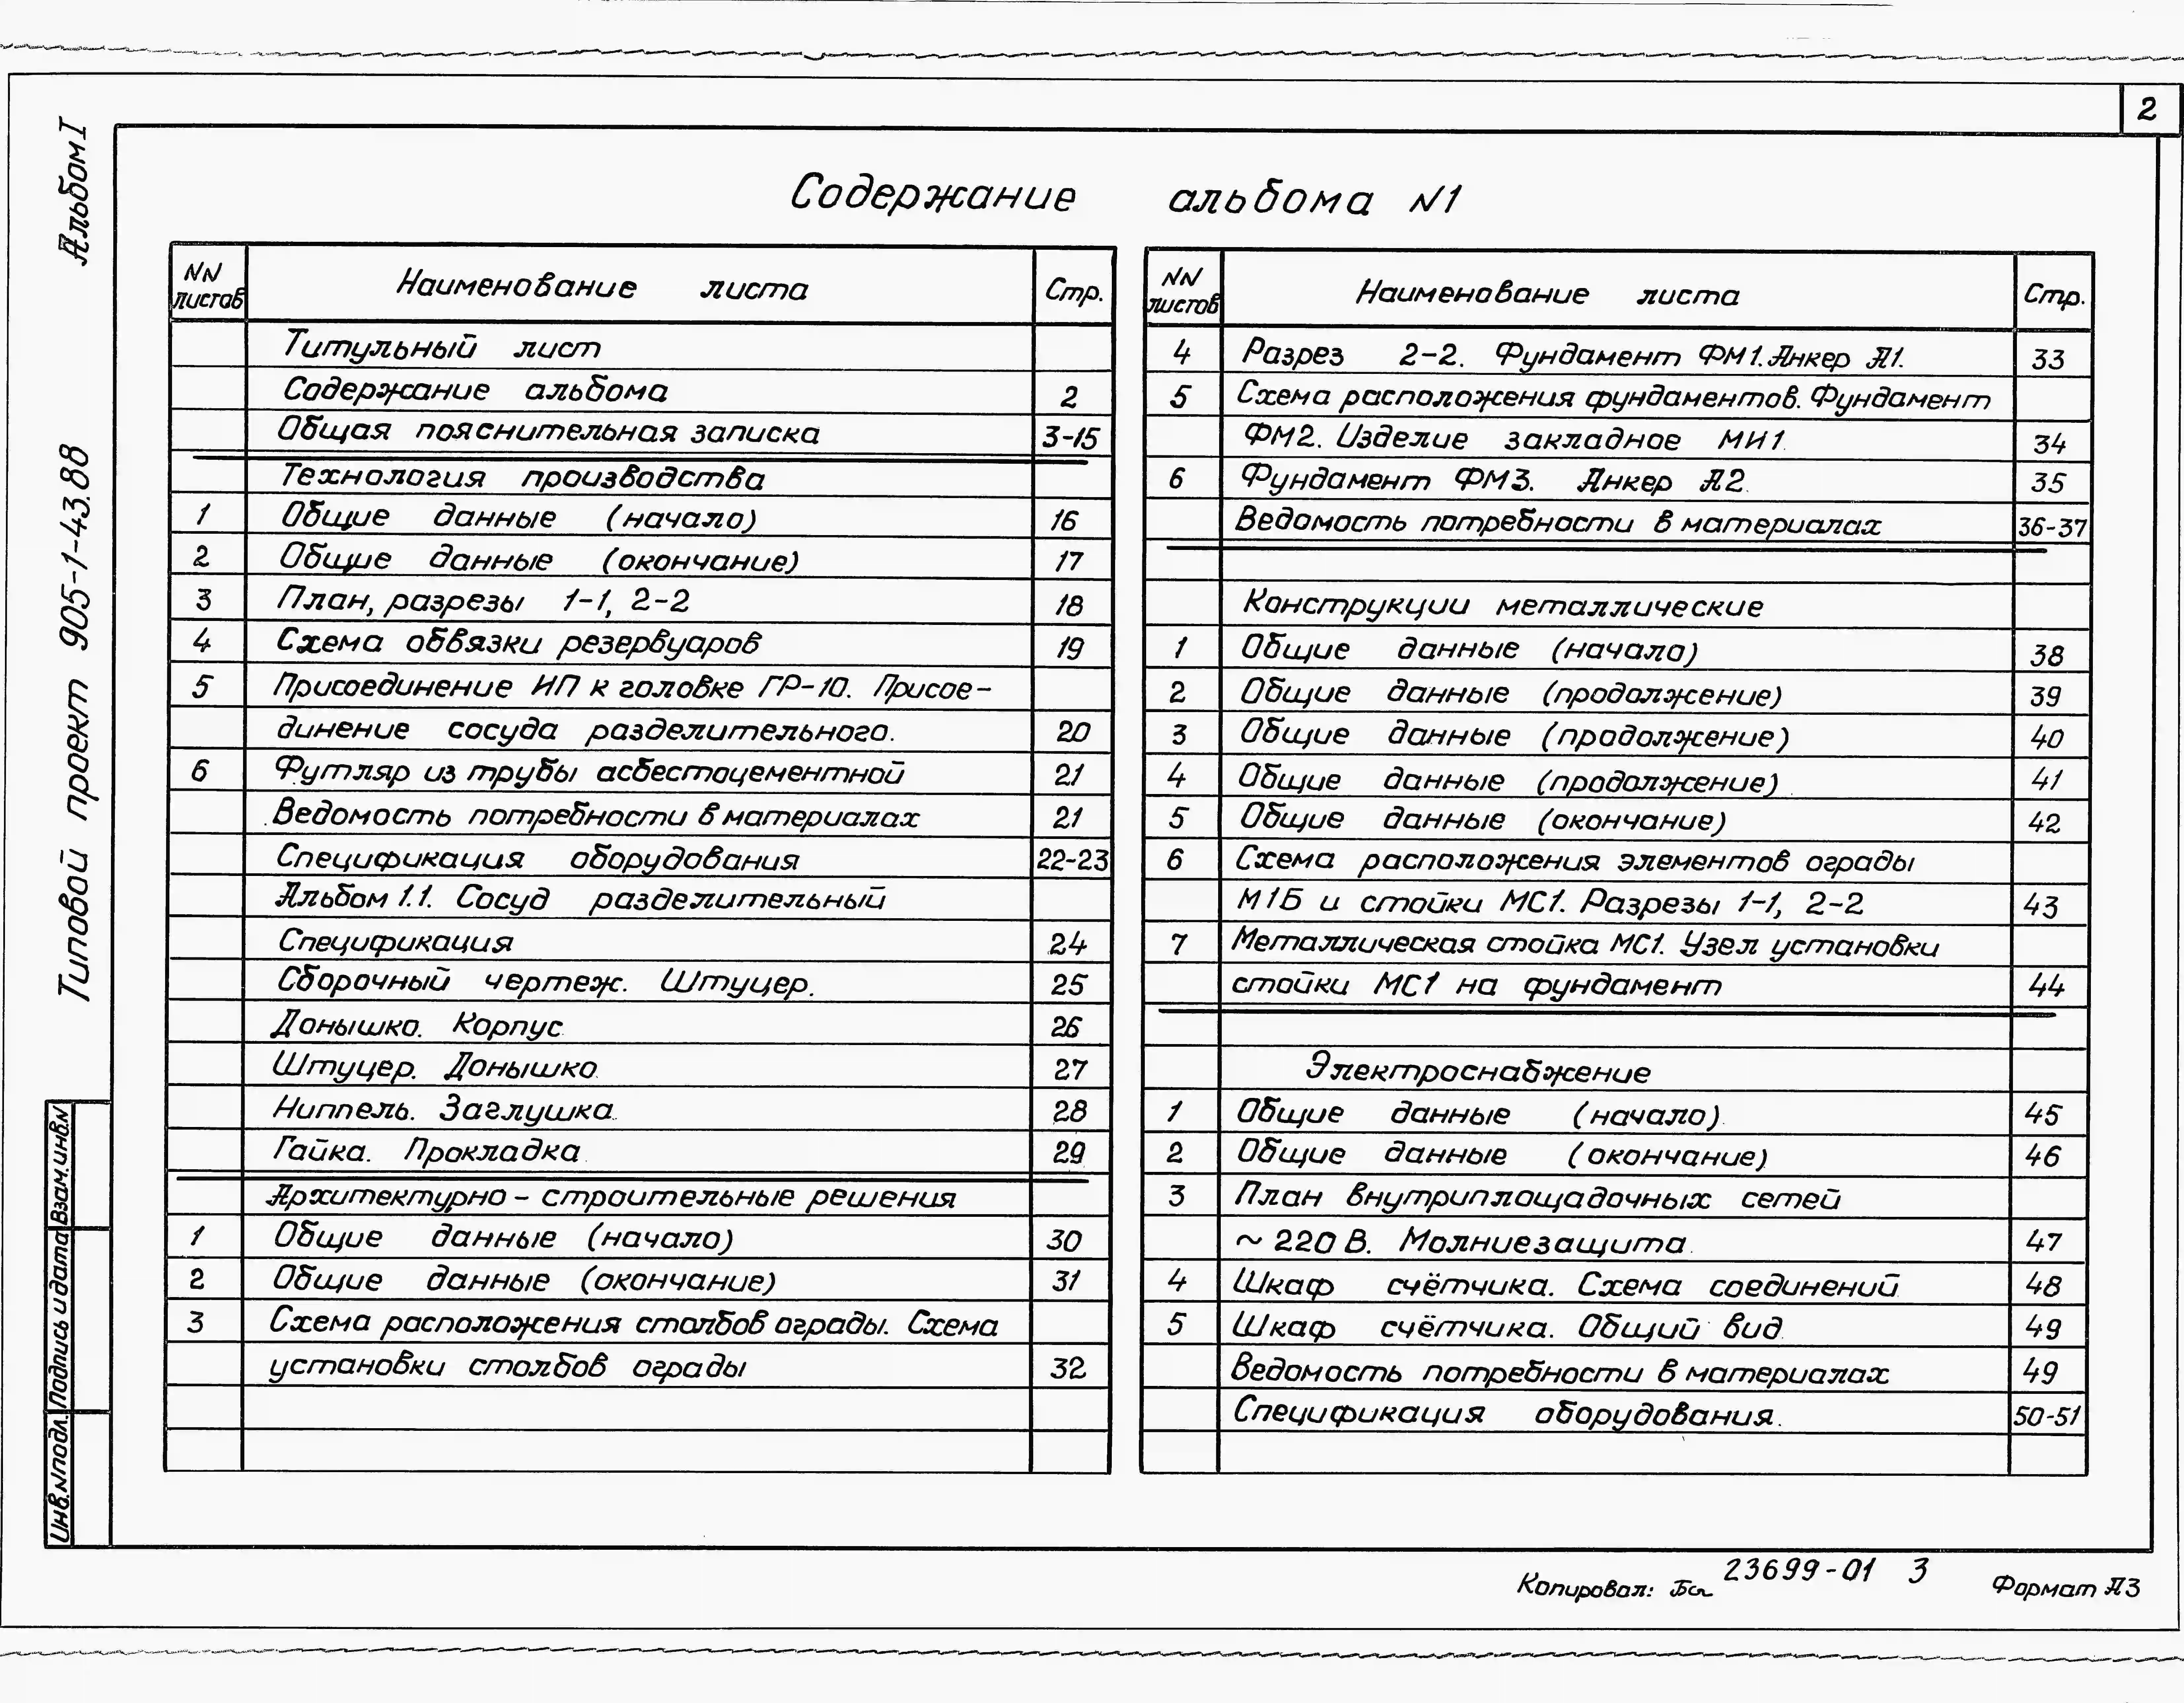 2
Альбом I
Типовой проект 905-1-43.88
Содержание альбома N1
NN листов Наименование листа Стр.
Титульный лист
Содержание альбома 2
Общая пояснительная записка 3-15
Технология производства
1 Общие данные (начало) 16
2 Общие данные (окончание) 17
3 План, разрезы 1-1, 2-2 18
4 Схема обвязки резервуаров 19
5 Присоединение ИП к головке ГР-10. Присое-
динение сосуда разделительного. 20
6 Футляр из трубы асбестоцементной 21
Ведомость потребности в материалах 21
Спецификация оборудования 22-23
Альбом 1.1. Сосуд разделительный
Спецификация 24
Сборочный чертеж. Штуцер. 25
Донышко. Корпус 26
Штуцер. Донышко 27
Ниппель. Заглушка. 28
Гайка. Прокладка 29
Архитектурно-строительные решения
1 Общие данные (начало) 30
2 Общие данные (окончание) 31
3 Схема расположения столбов ограды. Схема
установки столбов ограды 32
NN листов Наименование листа Стр.
4 Разрез 2-2. Фундамент ФМ1. Анкер А1. 33
5 Схема расположения фундаментов. Фундамент
ФМ2. Изделие закладное МИ1 34
6 Фундамент ФМ3. Анкер А2. 35
Ведомость потребности в материалах 36-37
Конструкции металлические
1 Общие данные (начало) 38
2 Общие данные (продолжение) 39
3 Общие данные (продолжение) 40
4 Общие данные (продолжение) 41
5 Общие данные (окончание) 42
6 Схема расположения элементов ограды
М1Б и стойки МС1. Разрезы 1-1, 2-2 43
7 Металлическая стойка МС1. Узел установки
стойки МС1 на фундамент 44
Электроснабжение
1 Общие данные (начало) 45
2 Общие данные (окончание) 46
3 План внутриплощадочных сетей
~ 220 В. Молниезащита. 47
4 Шкаф счётчика. Схема соединений 48
5 Шкаф счётчика. Общий вид 49
Ведомость потребности в материалах 49
Спецификация оборудования. 50-51
Взам.инв.N
Подпись и дата
Инв.Nподл.
Копировал: 23699-01 3 Формат А3